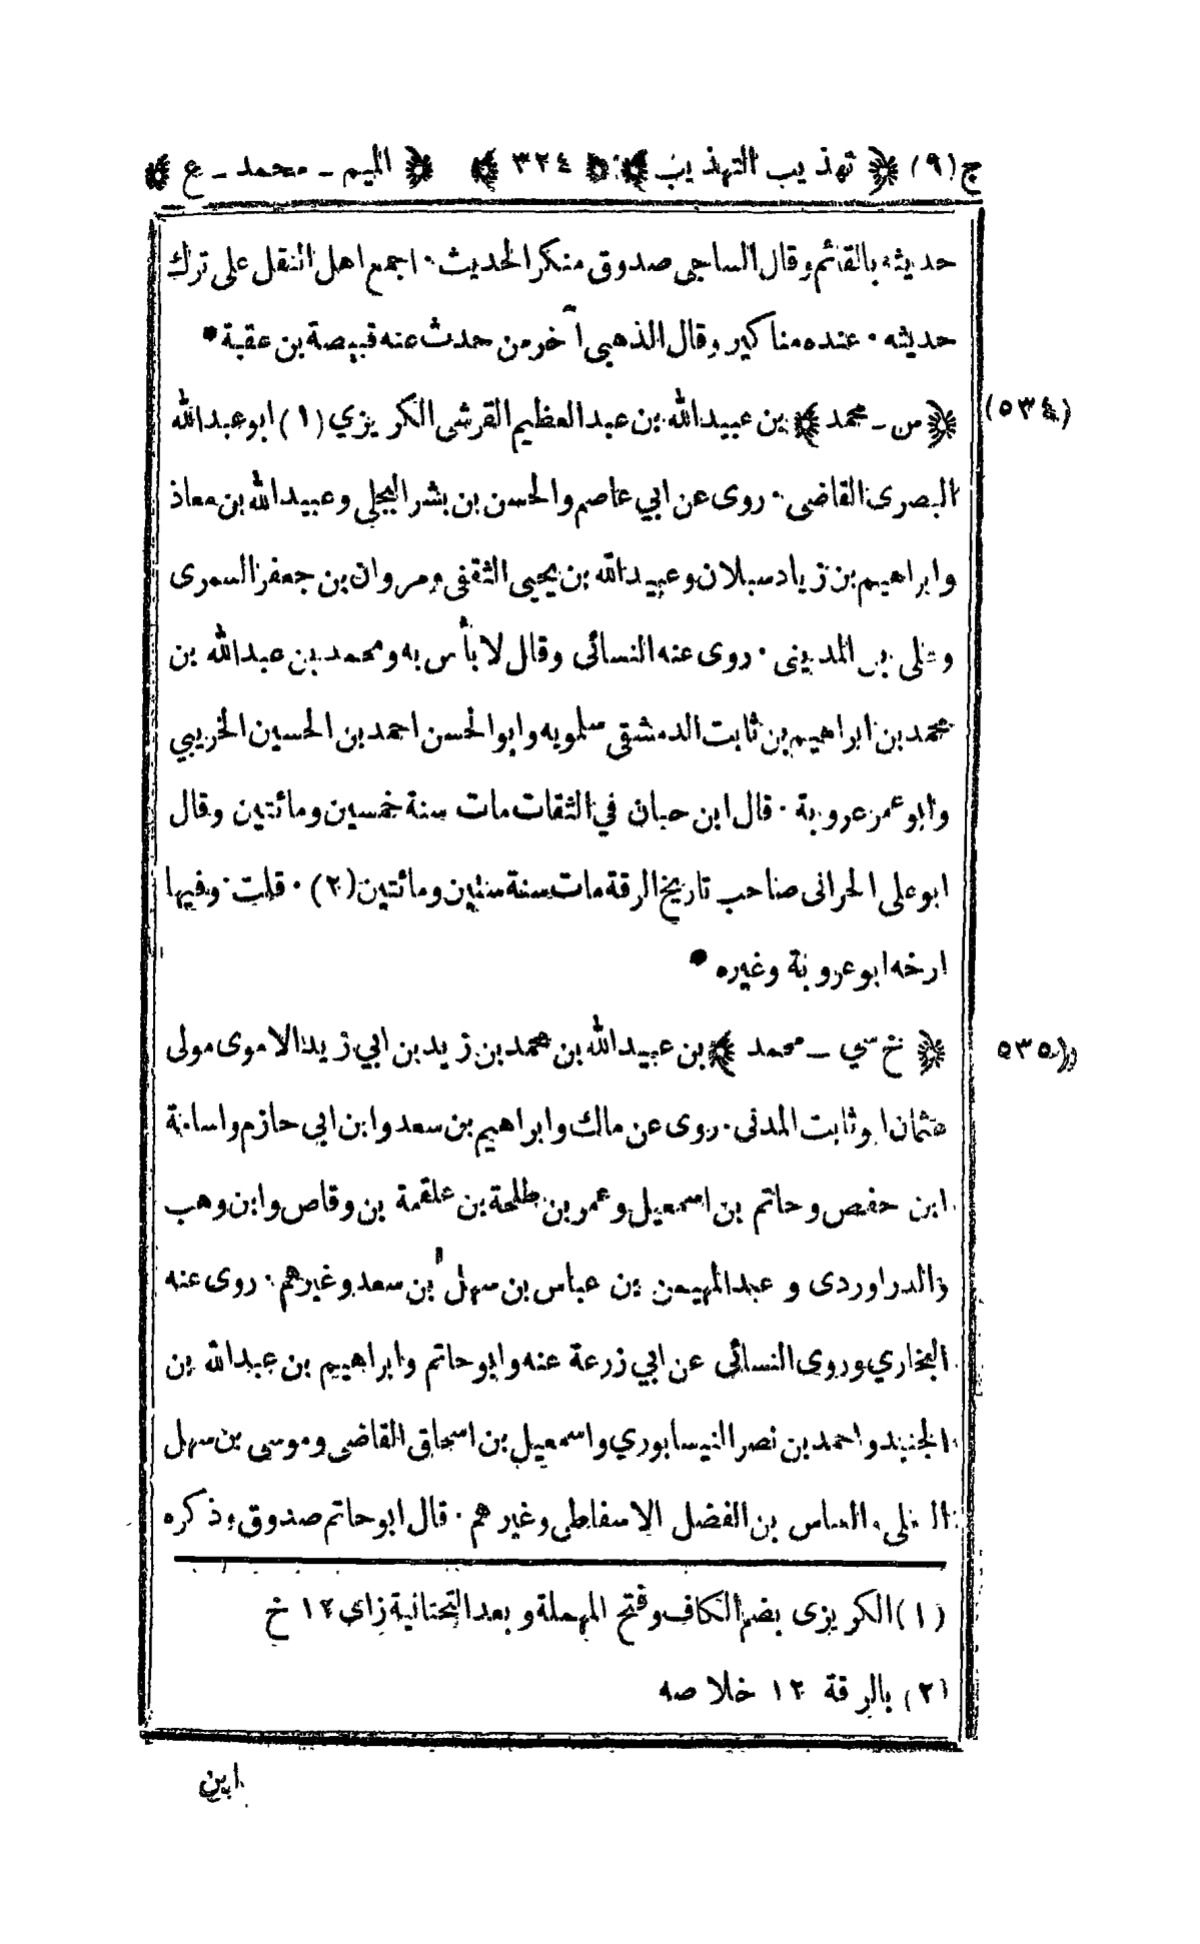 ج(٩) ﴿ تهذيب التهذيب ﴾ ﴿ ٣٢٤ ﴾ ﴿ الميم ـ محمد ـ ع ﴾
حديثه بالقائم وقال الساجى صدوق منكر الحديث ٠ اجمع اهل النقل على ترك
حديثه ٠ عنده مناكير وقال الذهبى آخر من حدث عنه قبيصة بن عقبة *
(٥٣٤) ﴿ س ـ محمد ﴾ بن عبيدالله بن عبدالعظيم القرشى الكريزي (١) ابو عبدالله
البصرى القاضى ٠ روى عن ابي عاصم والحسن بن بشر البجلي وعبيدالله بن معاذ
وابراهيم بن زياد سبلان وعبيدالله بن يحيى الثقفى ومروان بن جعفر السمرى
وعلى بن المدينى ٠ روى عنه النسائى وقال لا بأس به ومحمد بن عبدالله بن
محمد بن ابراهيم بن ثابت الدمشقى سلمويه وابو الحسن احمد بن الحسين الخريبي
وابو عمر عروبة ٠ قال ابن حبان في الثقات مات سنة خمسين ومائتين وقال
ابو على الحرانى صاحب تاريخ الرقة مات سنة ستين ومائتين (٢) ٠ قلت ٠ وفيها
ارخه ابو عروبة وغيره *
(٥٣٥) ﴿ خ سي ـ محمد ﴾ بن عبيدالله بن محمد بن زيد بن ابي زيد الاموى مولى
عثمان ابو ثابت المدنى ٠ روى عن مالك وابراهيم بن سعد وابن ابى حازم واسامة
ابن حفص وحاتم بن اسمعيل وعمر بن طلحة بن علقمة بن وقاص وابن وهب
والدراوردى و عبدالمهيمن بن عباس بن سهل بن سعد وغيرهم ٠ روى عنه
البخاري وروى النسائى عن ابي زرعة عنه وابو حاتم وابراهيم بن عبدالله بن
الجنيد واحمد بن نصر النيسابوري واسمعيل بن اسحاق القاضى وموسى بن سهل
الرملى والعباس بن الفضل الاسفاطى وغيرهم ٠ قال ابو حاتم صدوق وذكره
(١) الكريزى بضم الكاف وفتح المهملة وبعد التحتانية زاى ١٢ خ
(٢) بالرقة ١٢ خلاصه
ابن